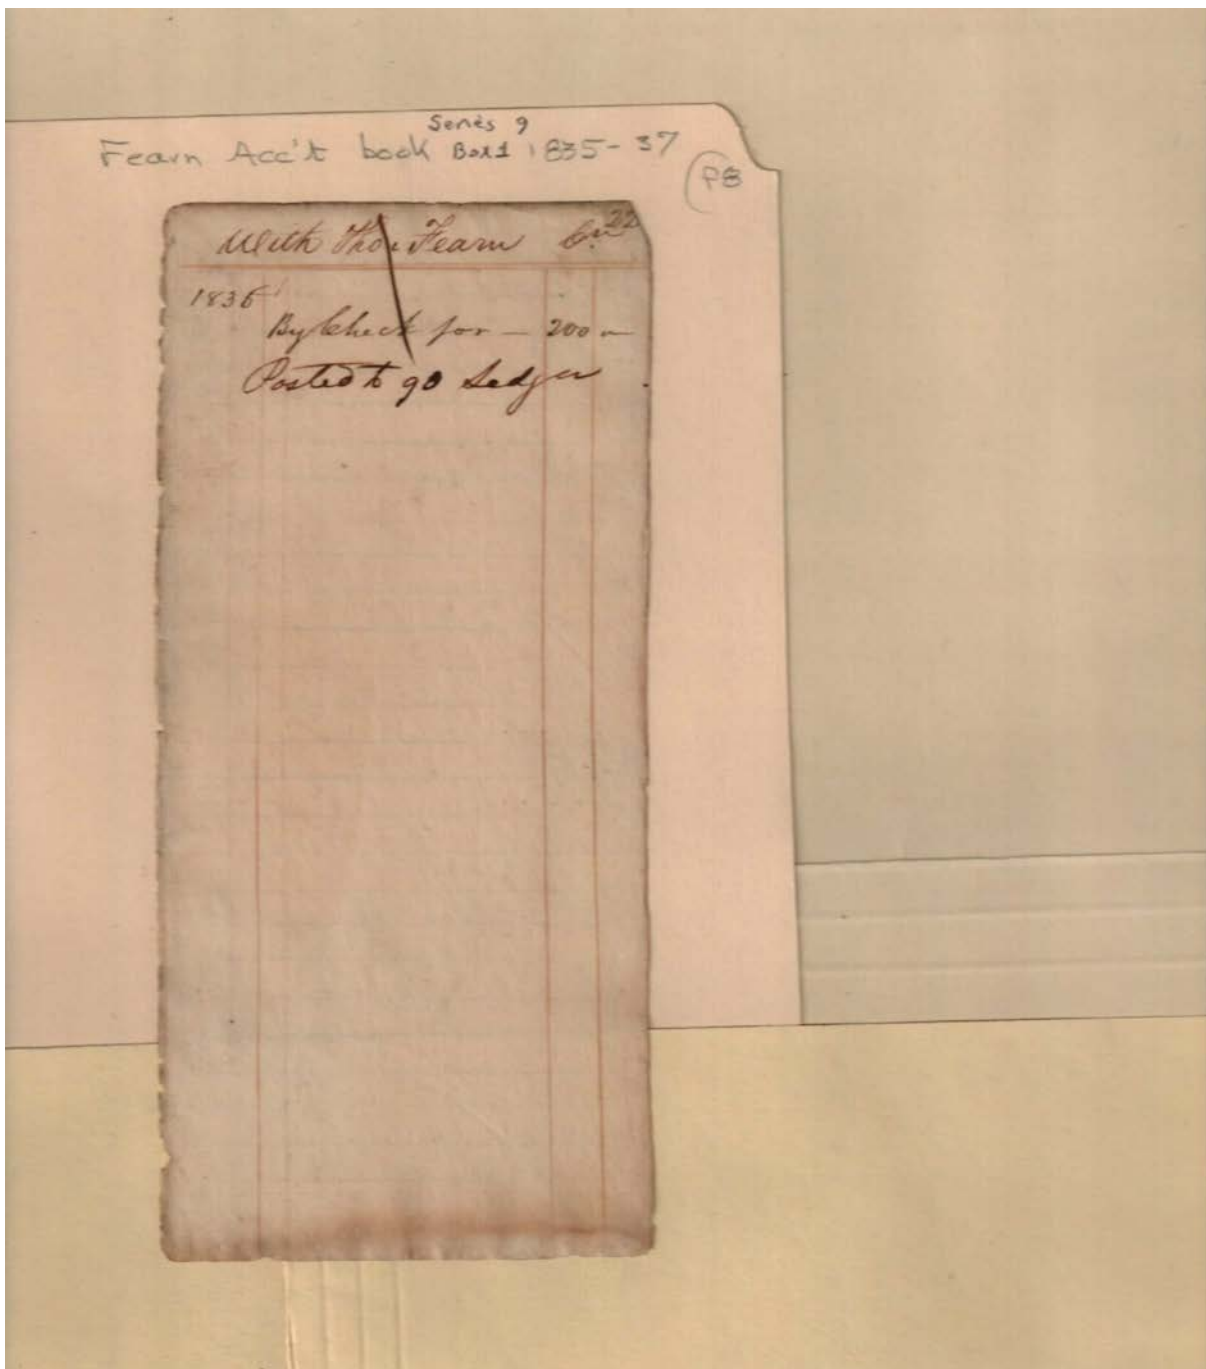 Series 9
Fearn Acc't book Box 1 1835-37
P8
22
With Thos Fearn Cr.
1836
By Check for — 200 —
Posted to 90 Ledger